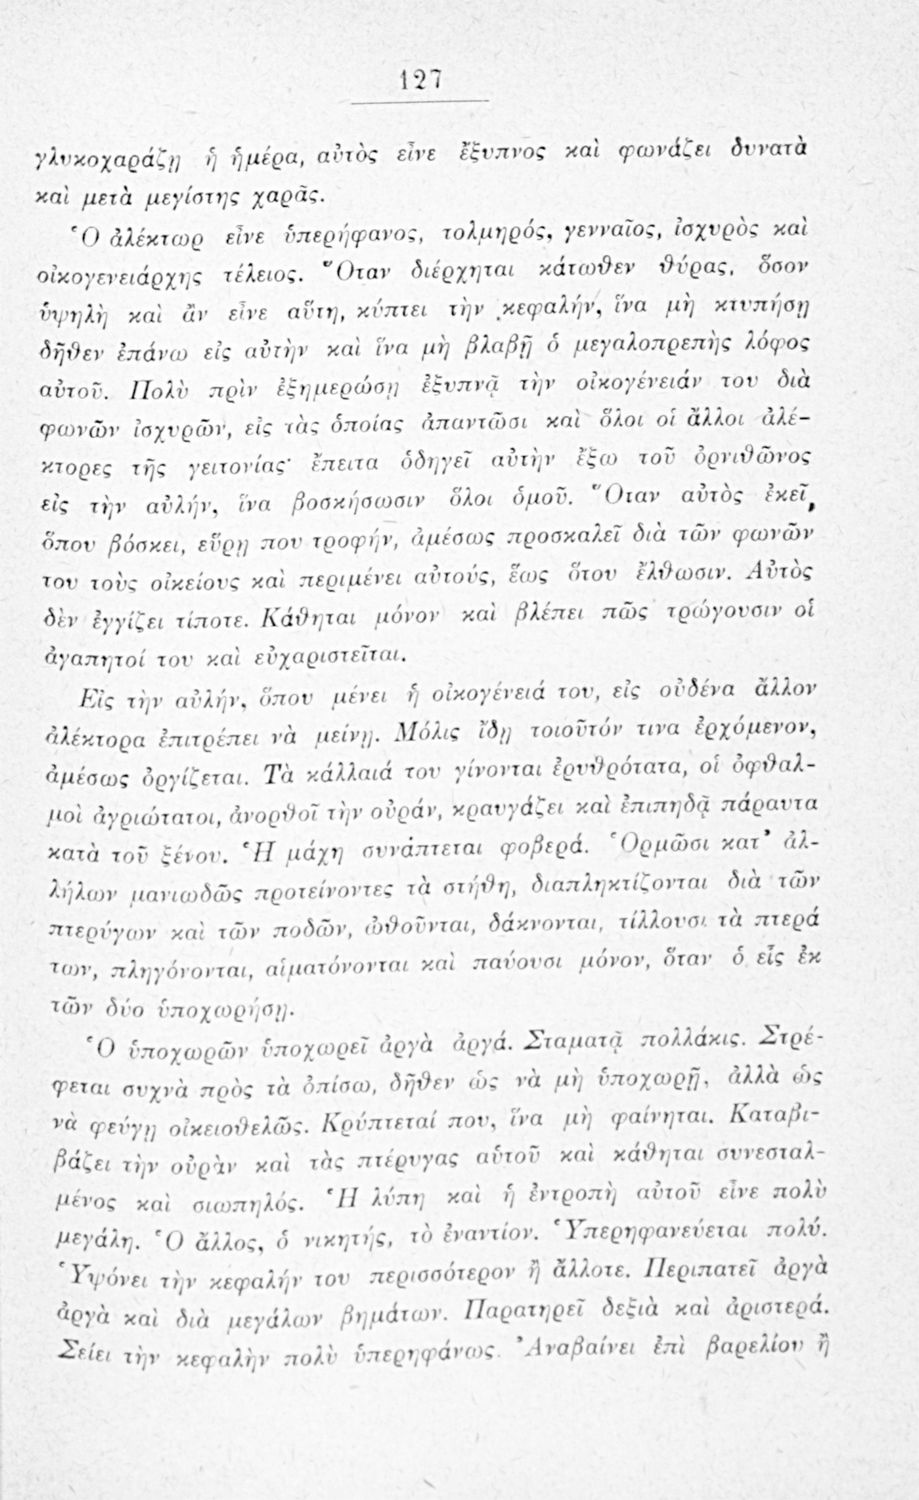 127
γλυκοχαράζῃ ἡ ἡμέρα, αὐτὸς εἶνε ἔξυπνος καὶ φωνάζει δυνατὰ
καὶ μετὰ μεγίστης χαρᾶς.
Ὁ ἀλέκτωρ εἶνε ὑπερήφανος, τολμηρός, γενναῖος, ἰσχυρὸς καὶ
οἰκογενειάρχης τέλειος. Ὅταν διέρχηται κάτωθεν θύρας, ὅσον
ὑψηλὴ καὶ ἂν εἶνε αὕτη, κύπτει τὴν κεφαλήν, ἵνα μὴ κτυπήσῃ
δῆθεν ἐπάνω εἰς αὐτὴν καὶ ἵνα μὴ βλαβῇ ὁ μεγαλοπρεπὴς λόφος
αὐτοῦ. Πολὺ πρὶν ἐξημερώσῃ ἐξυπνᾷ τὴν οἰκογένειάν του διὰ
φωνῶν ἰσχυρῶν, εἰς τὰς ὁποίας ἀπαντῶσι καὶ ὅλοι οἱ ἄλλοι ἀλέ-
κτορες τῆς γειτονίας· ἔπειτα ὁδηγεῖ αὐτὴν ἔξω τοῦ ὀρνιθῶνος
εἰς τὴν αὐλήν, ἵνα βοσκήσωσιν ὅλοι ὁμοῦ. Ὅταν αὐτὸς ἐκεῖ,
ὅπου βόσκει, εὕρῃ που τροφήν, ἀμέσως προσκαλεῖ διὰ τῶν φωνῶν
του τοὺς οἰκείους καὶ περιμένει αὐτούς, ἕως ὅτου ἔλθωσιν. Αὐτὸς
δὲν ἐγγίζει τίποτε. Κάθηται μόνον καὶ βλέπει πῶς τρώγουσιν οἱ
ἀγαπητοί του καὶ εὐχαριστεῖται.
Εἰς τὴν αὐλήν, ὅπου μένει ἡ οἰκογένειά του, εἰς οὐδένα ἄλλον
ἀλέκτορα ἐπιτρέπει νὰ μείνῃ. Μόλις ἴδῃ τοιοῦτόν τινα ἐρχόμενον,
ἀμέσως ὀργίζεται. Τὰ κάλλαιά του γίνονται ἐρυθρότατα, οἱ ὀφθαλ-
μοὶ ἀγριώτατοι, ἀνορθοῖ τὴν οὐράν, κραυγάζει καὶ ἐπιπηδᾷ πάραυτα
κατὰ τοῦ ξένου. Ἡ μάχη συνάπτεται φοβερά. Ὁρμῶσι κατ' ἀλ-
λήλων μανιωδῶς προτείνοντες τὰ στήθη, διαπληκτίζονται διὰ τῶν
πτερύγων καὶ τῶν ποδῶν, ὠθοῦνται, δάκνονται, τίλλουσι τὰ πτερά
των, πληγόνονται, αἱματόνονται καὶ παύουσι μόνον, ὅταν ὁ εἷς ἐκ
τῶν δύο ὑποχωρήσῃ.
Ὁ ὑποχωρῶν ὑποχωρεῖ ἀργὰ ἀργά. Σταματᾷ πολλάκις. Στρέ-
φεται συχνὰ πρὸς τὰ ὀπίσω, δῆθεν ὡς νὰ μὴ ὑποχωρῇ, ἀλλὰ ὡς
νὰ φεύγῃ οἰκειοθελῶς. Κρύπτεταί που, ἵνα μὴ φαίνηται. Καταβι-
βάζει τὴν οὐρὰν καὶ τὰς πτέρυγας αὑτοῦ καὶ κάθηται συνεσταλ-
μένος καὶ σιωπηλός. Ἡ λύπη καὶ ἡ ἐντροπὴ αὐτοῦ εἶνε πολὺ
μεγάλη. Ὁ ἄλλος, ὁ νικητής, τὸ ἐναντίον. Ὑπερηφανεύεται πολύ.
Ὑψόνει τὴν κεφαλήν του περισσότερον ἢ ἄλλοτε. Περιπατεῖ ἀργὰ
ἀργὰ καὶ διὰ μεγάλων βημάτων. Παρατηρεῖ δεξιὰ καὶ ἀριστερά.
Σείει τὴν κεφαλὴν πολὺ ὑπερηφάνως. Ἀναβαίνει ἐπὶ βαρελίου ἢ